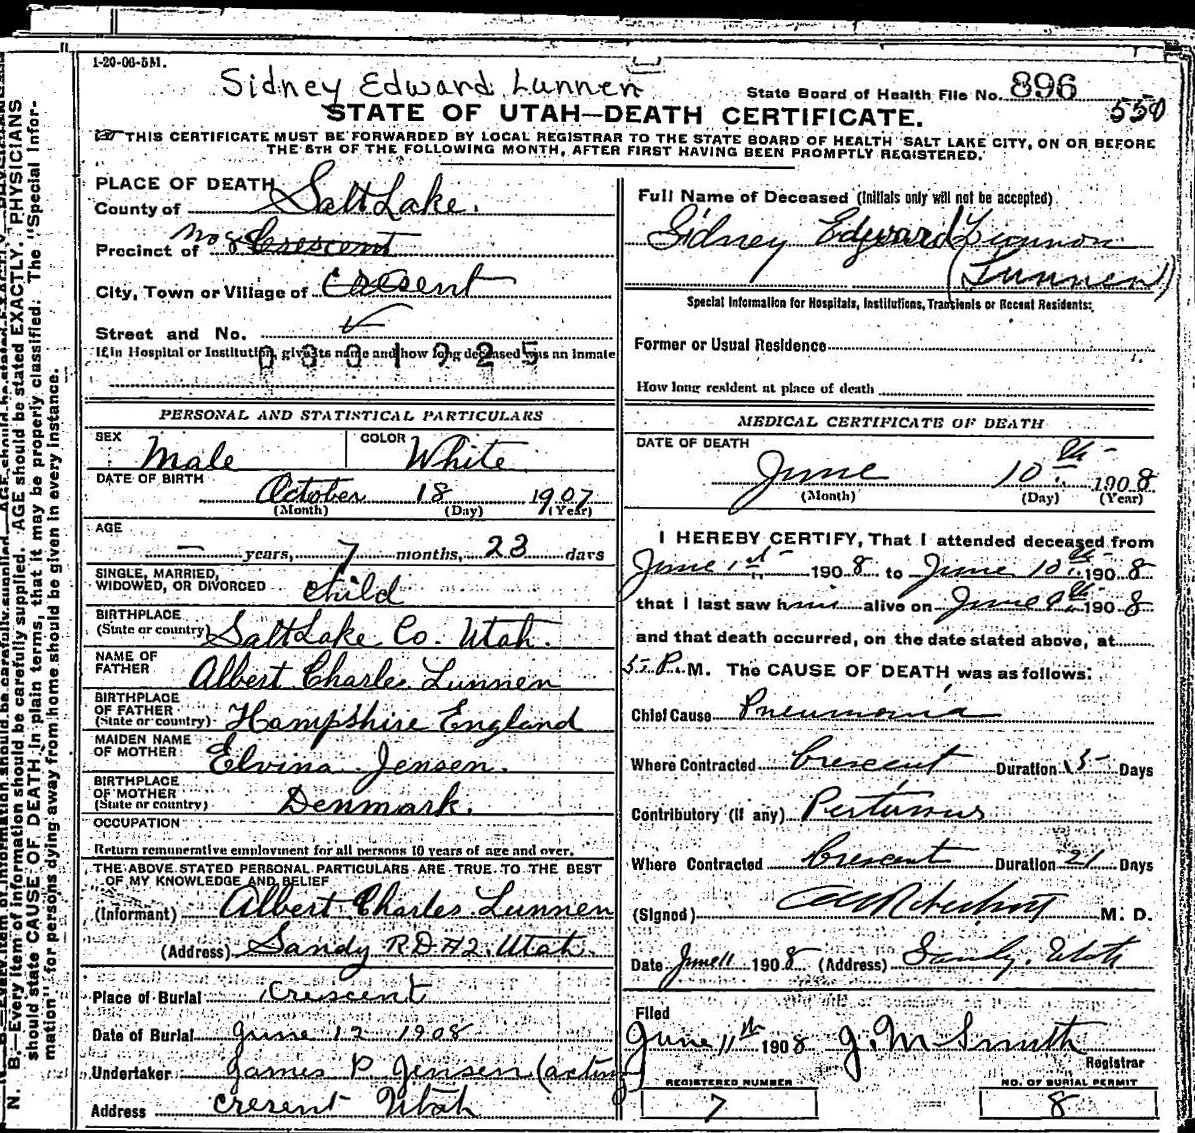 1-20-06-5M.
Sidney Edward Lunnen
State Board of Health File No. 896
550
STATE OF UTAH—DEATH CERTIFICATE.
THIS CERTIFICATE MUST BE FORWARDED BY LOCAL REGISTRAR TO THE STATE BOARD OF HEALTH SALT LAKE CITY, ON OR BEFORE
THE 5TH OF THE FOLLOWING MONTH, AFTER FIRST HAVING BEEN PROMPTLY REGISTERED.
PLACE OF DEATH
County of Salt Lake.
Precinct of Crescent
City, Town or Village of Cresent
Street and No.
If in Hospital or Institution, give its name and how long deceased was an inmate
0801925
PERSONAL AND STATISTICAL PARTICULARS
SEX Male
COLOR White
DATE OF BIRTH
October 18 1907
(Month) (Day) (Year)
AGE
— years, 7 months, 23 days
SINGLE, MARRIED,
WIDOWED, OR DIVORCED child
BIRTHPLACE
(State or country) Salt Lake Co. Utah.
NAME OF
FATHER Albert Charles Lunnen
BIRTHPLACE
OF FATHER
(State or country) Hampshire England
MAIDEN NAME
OF MOTHER Elvina Jensen.
BIRTHPLACE
OF MOTHER
(State or country) Denmark.
OCCUPATION
Return remunerative employment for all persons 10 years of age and over.
THE ABOVE STATED PERSONAL PARTICULARS ARE TRUE TO THE BEST
OF MY KNOWLEDGE AND BELIEF
(Informant) Albert Charles Lunnen
(Address) Sandy RD #2. Utah.
Place of Burial Crescent
Date of Burial June 12 1908
Undertaker James P Jensen (acting
Address Cresent Utah
Full Name of Deceased (Initials only will not be accepted)
Sidney Edward
(Lunnen)
Special Information for Hospitals, Institutions, Transients or Recent Residents:
Former or Usual Residence
How long resident at place of death
MEDICAL CERTIFICATE OF DEATH
DATE OF DEATH
June 10th 1908
(Month) (Day) (Year)
I HEREBY CERTIFY, That I attended deceased from
June 1st 1908 to June 10th 1908
that I last saw him alive on June 9th 1908
and that death occurred, on the date stated above, at
5 P. M. The CAUSE OF DEATH was as follows:
Chief Cause Pneumonia
Where Contracted Crescent Duration 15 Days
Contributory (if any) Pertussus
Where Contracted Crescent Duration 21 Days
(Signed) M. D.
Date June 11 1908 (Address) Sandy. Utah
Filed
June 11th 1908 J. M Smith
Registrar
REGISTERED NUMBER
7
NO. OF BURIAL PERMIT
8
N. B.—Every item of information should be carefully supplied. AGE should be stated EXACTLY. PHYSICIANS
should state CAUSE OF DEATH in plain terms, that it may be properly classified. The "Special Infor-
mation" for persons dying away from home should be given in every instance.